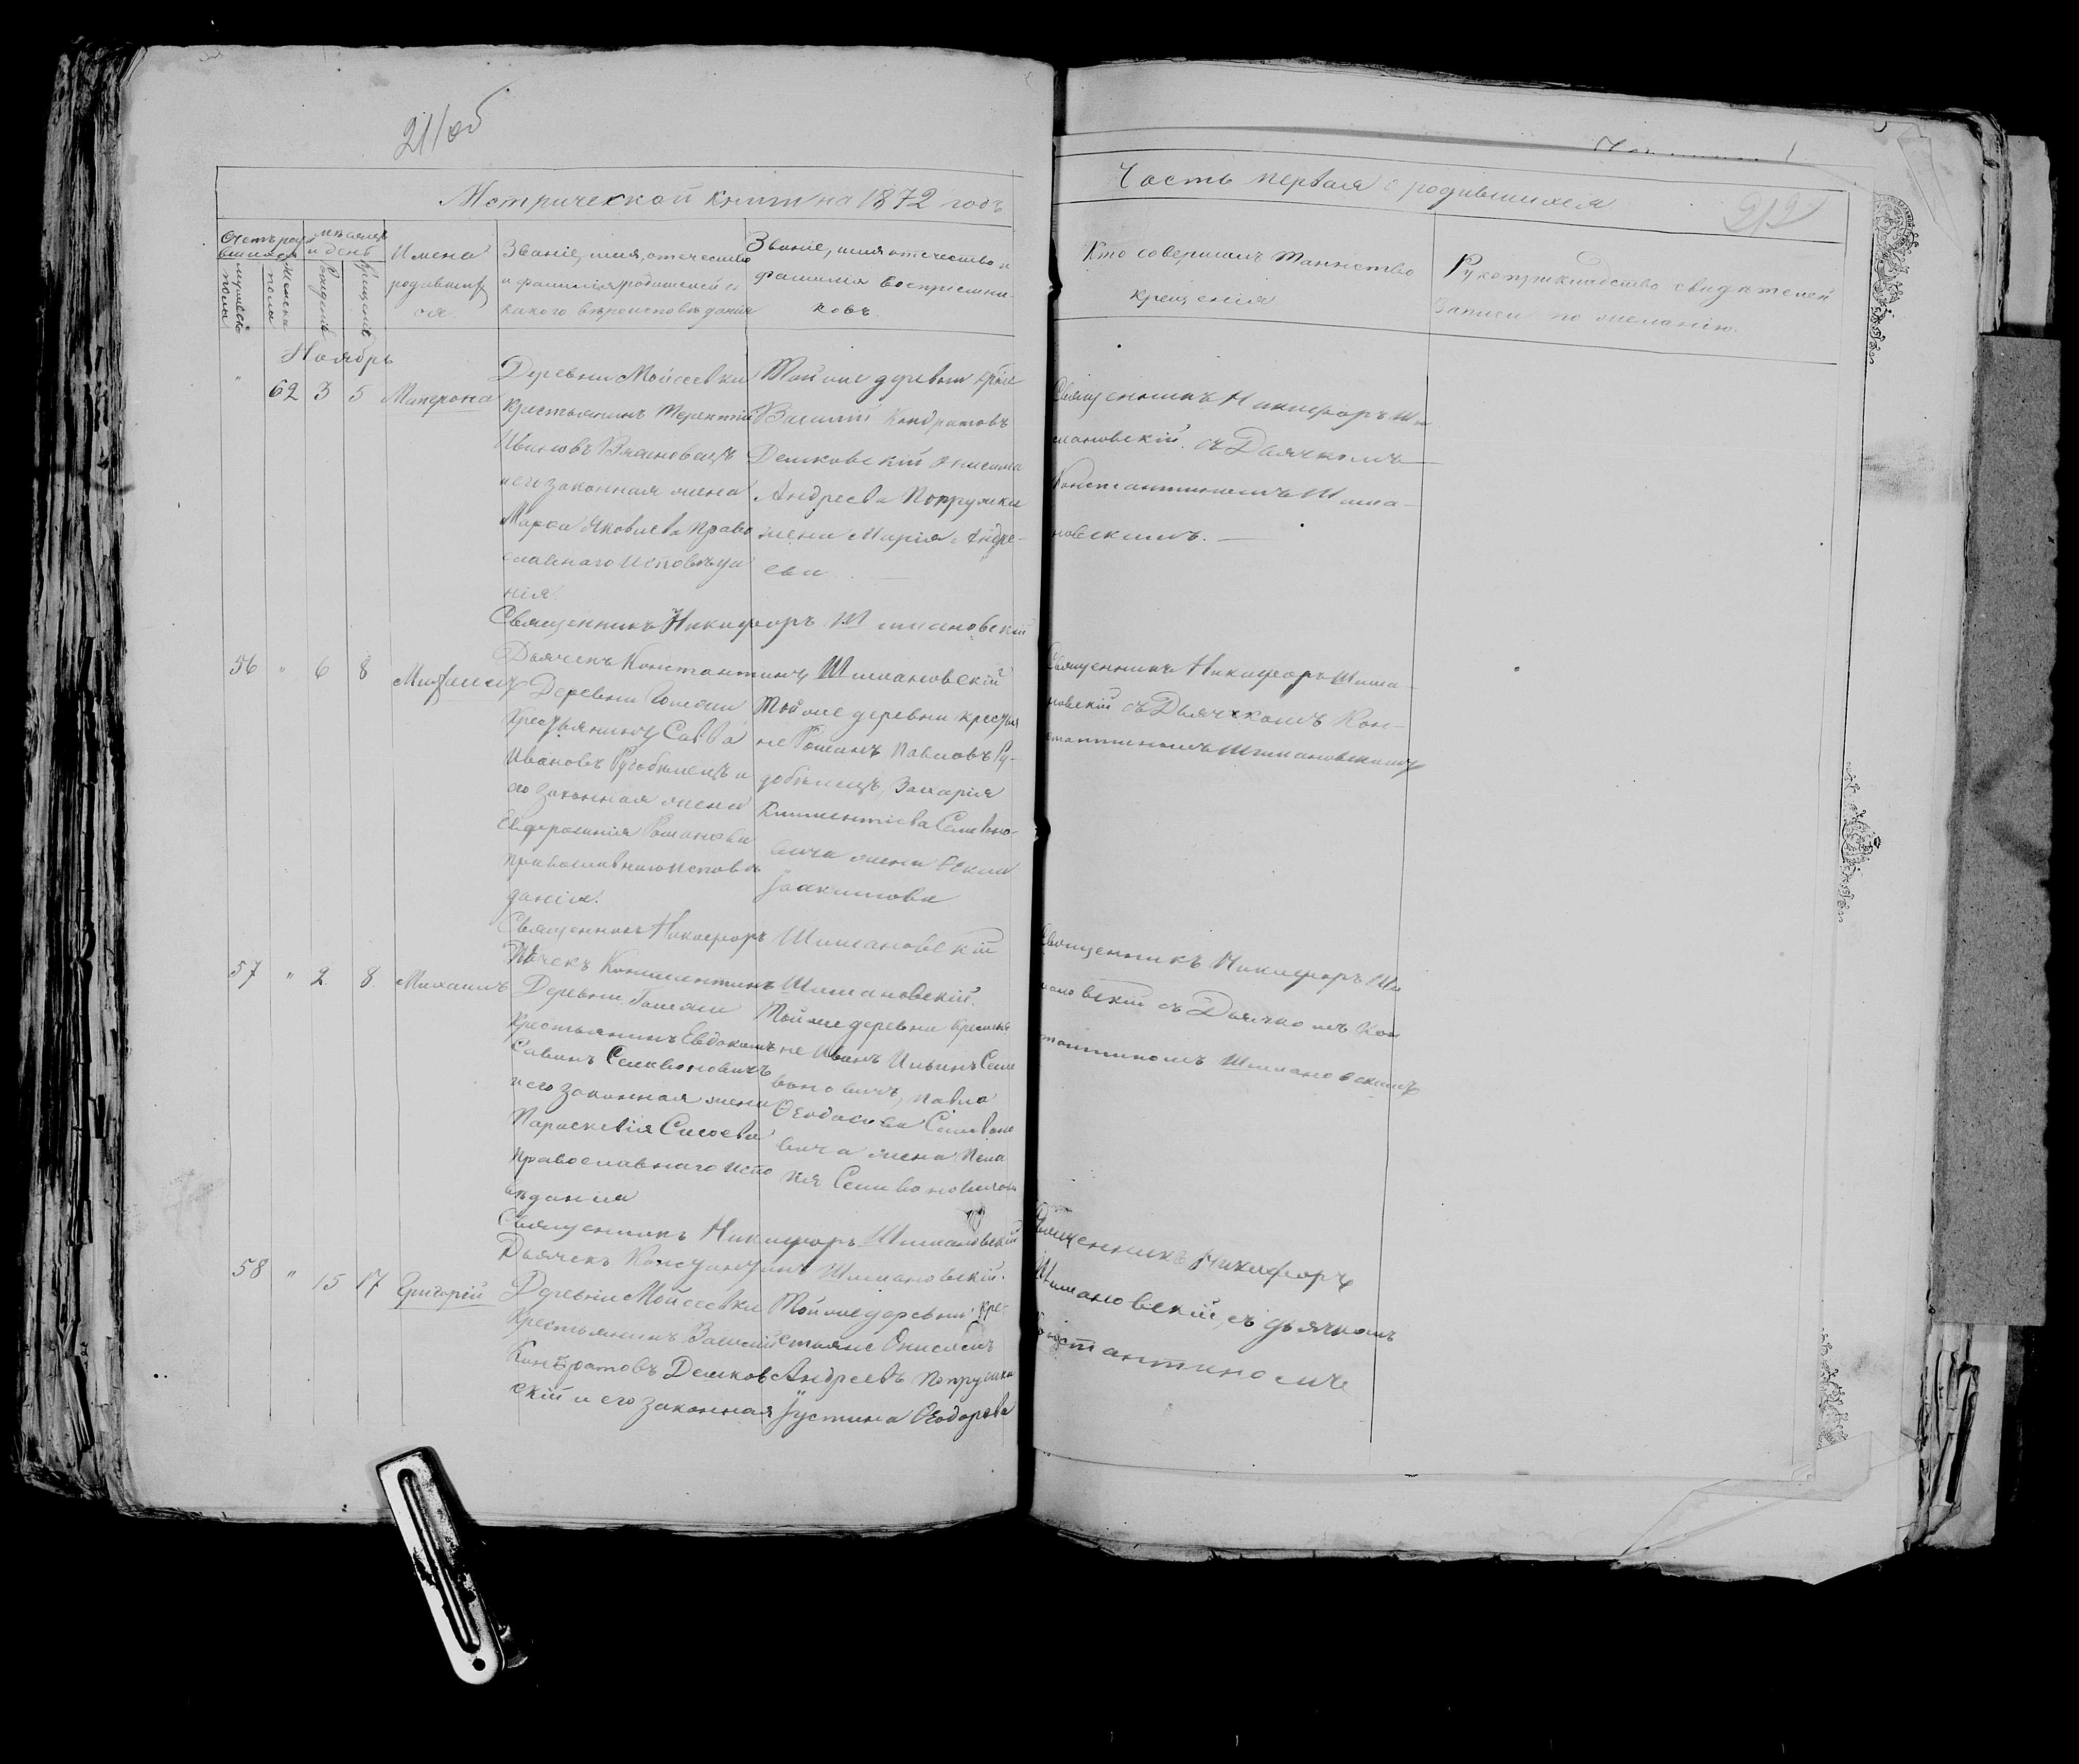 211 об
Метрической книги на 1872 годъ
Часть первая о родившихся
212
Счетъ роди
вшихся
мужеска
пола
женска
пола
мѣсяцъ
и день
рожденія
крещенія
Имена
родивших
ся.
Званіе, имя, отечество
и фамилія родителей и
какого вѣроисповѣданія
Званіе, имя отечество и
фамилія воспріемни-
ковъ.
Кто совершалъ таинство
крещенія
Рукоприкладство свидѣтелей
записи по желанію.
Ноябрь
" 62 3 5
Деревни Мойсеевки
крестьянинъ Терентій
Ивановъ
и его законная жена
Марфа Яковлева право
славнаго исповѣда
нія.
Той же деревни
Василій Кондратовъ
Демковскій Онисима
Андреева
жена Марія Андре-
ева
Священникъ Никифоръ Ши
мановскій съ Дьячкомъ
Константиномъ Шима-
новскимъ.
Священникъ Никифоръ Шимановскій
Дьячекъ Константинъ Шимановскій
56 " 6 8
Деревни
Крестьянинъ Савва
Ивановъ Рудобѣлецъ и
его законная жена
Евфросинія Романова
православнаго исповѣ
данія.
Той же деревни крестья
не Романъ Павловъ Ру-
добѣлецъ, Захарія
Климентіева Селивоно-
вича жена
Іоакимова
Священникъ Никифоръ Шима-
новскій съ Дьячкомъ Кон-
стантиномъ Шимановскимъ
Священникъ Никифоръ Шимановскій
Дьячекъ Константинъ Шимановскій.
57 " 2 8 Михаилъ
Деревни
Крестьянинъ Евдокимъ
Савинъ Селивоновичъ
и его законная жена
Параскевія Сисоева
православнаго испо
вѣданія
Той же деревни крестья
не Иванъ Ильинъ Сели
воновичъ, Павла
Ѳеодосіева Селивоно
вича жена
Священникъ Никифоръ Ши
мановскій съ Дьячкомъ Кон
стантиномъ Шимановскимъ
Священникъ Никифоръ Шимановскій
Дьячекъ Константинъ Шимановскій.
58 " 15 17 Григорій
Деревни Мойсеевки
Крестьянинъ Василій
Кондратовъ Демков
скій и его законная
Той же деревни кре-
стьяне Онисимъ
Андреевъ
Іустина Ѳеодорова
Священникъ Никифоръ
Шимановскій, съ дьячкомъ
Константиномъ